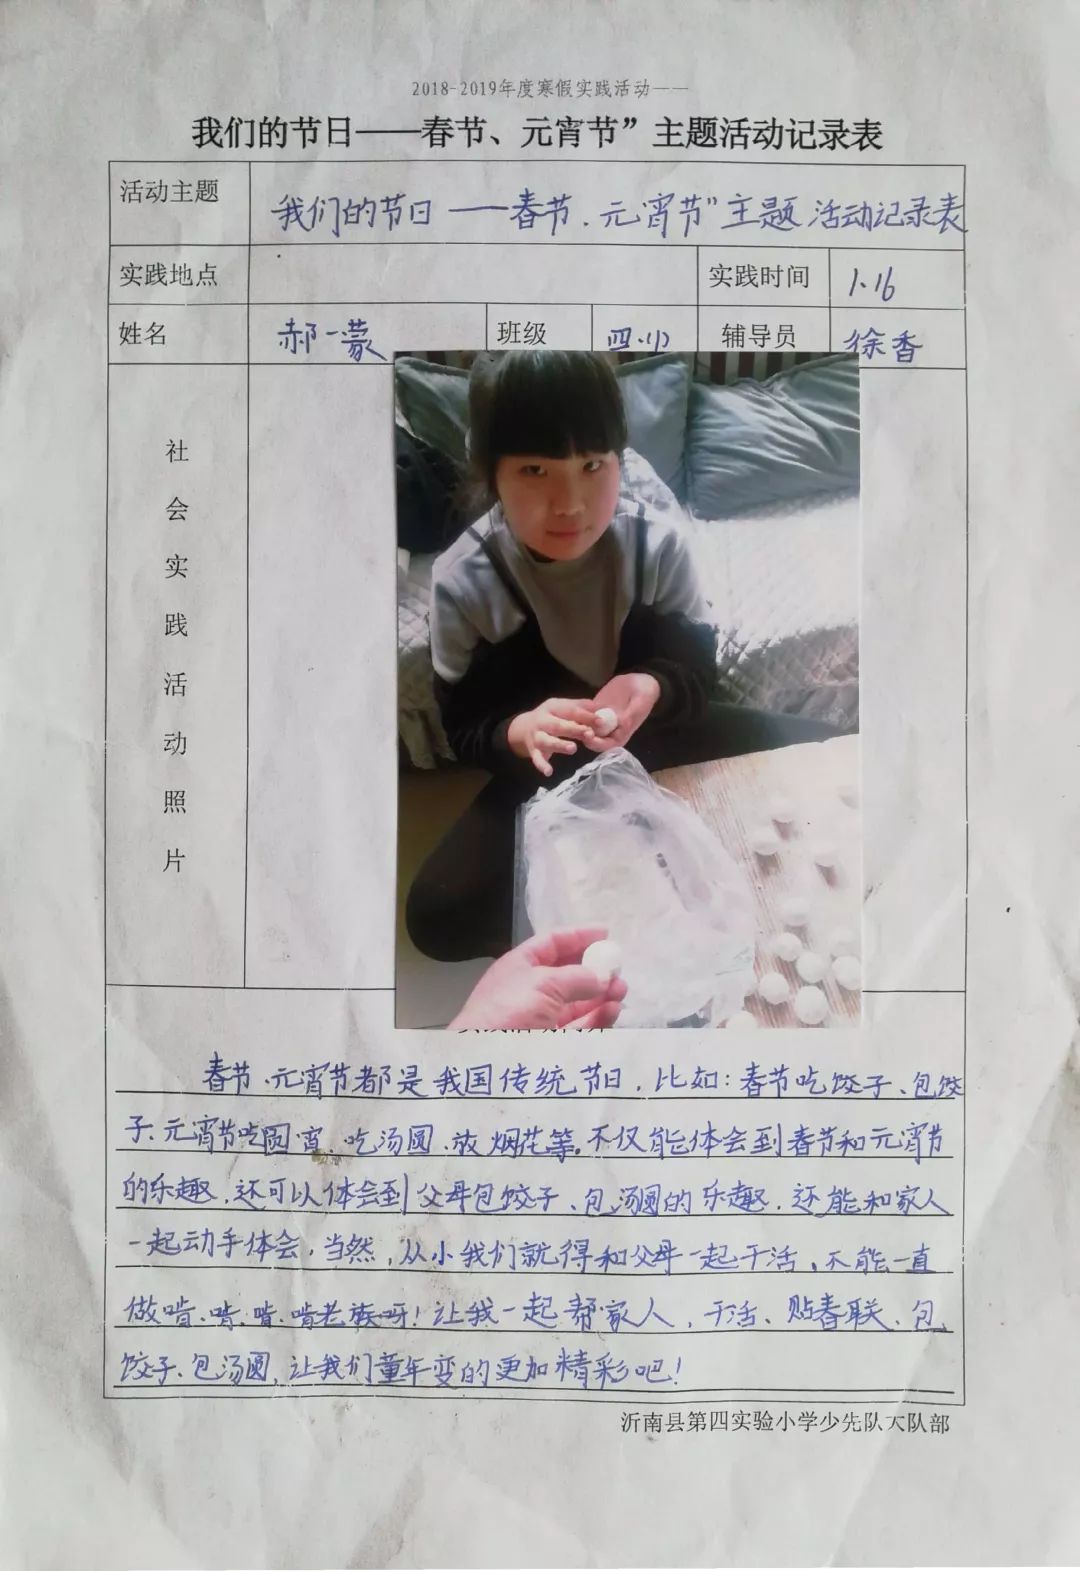 2018-2019年度寒假实践活动——
我们的节日——春节、元宵节”主题活动记录表
活动主题 我们的节日——春节、元宵节”主题活动记录表
实践地点 实践时间 1.16
姓名 郝一蒙 班级 辅导员 徐香
社会实践活动照片
春节、元宵节都是我国传统节日，比如：春节吃饺子、包饺
子、元宵节吃圆宵、吃汤圆、放烟花等。不仅能体会到春节和元宵节
的乐趣，还可以体会到父母包饺子、包汤圆的乐趣，还能和家人
一起动手体会，当然，从小我们就得和父母一起干活，不能一直
做啃、啃、啃、啃老族呀！让我一起帮家人，干活、贴春联、包
饺子、包汤圆，让我们童年变的更加精彩吧！
沂南县第四实验小学少先队大队部